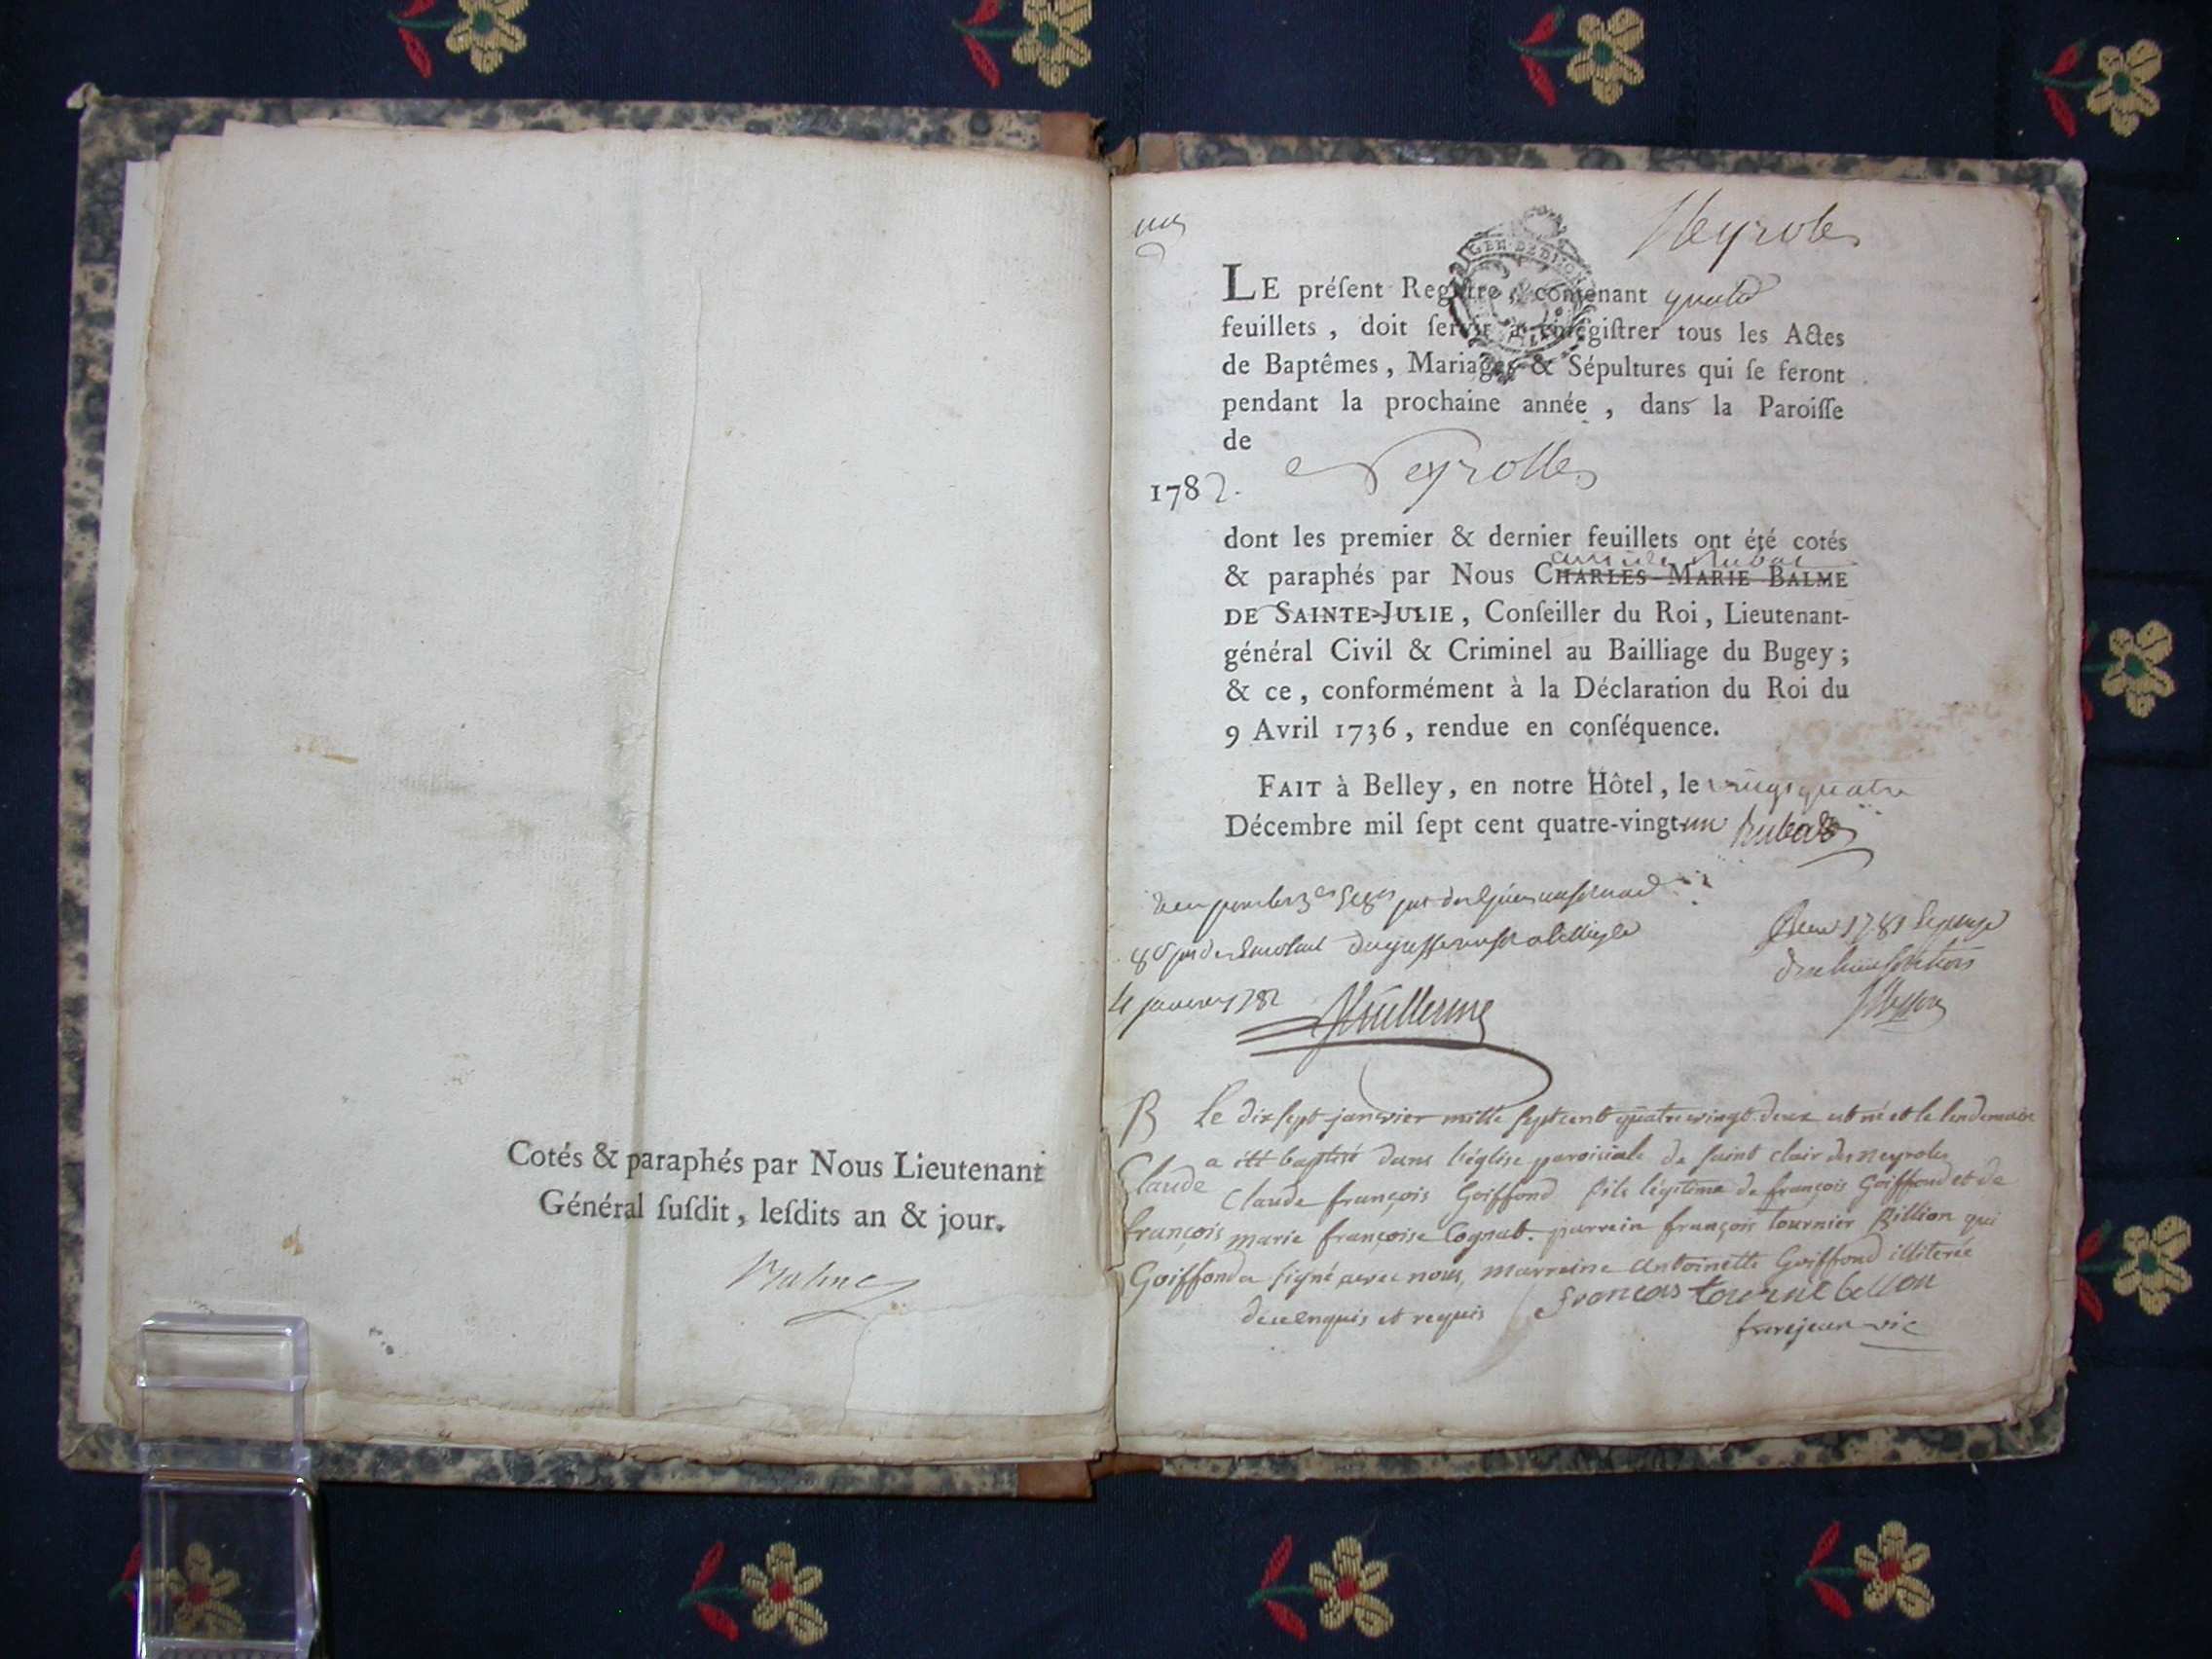 Cotés & paraphés par Nous Lieutenant
Général ſuſdit, leſdits an & jour.
Balme
une
Neyroles
GEN. DE DIJON
LE préſent Regiſtre, contenant quatre
feuillets, doit ſervir à enregiſtrer tous les Actes
de Baptêmes, Mariages & Sépultures qui ſe feront
pendant la prochaine année, dans la Paroiſſe
de
Neyrolles
1782.
dont les premier & dernier feuillets ont été cotés
& paraphés par Nous CHARLES-MARIE BALME
DE SAINTE-JULIE, Conſeiller du Roi, Lieutenant-
général Civil & Criminel au Bailliage du Bugey;
& ce, conformément à la Déclaration du Roi du
9 Avril 1736, rendue en conſéquence.
FAIT à Belley, en notre Hôtel, le vingt quatre
Décembre mil ſept cent quatre-vingt-un
4 janvier 1782
B Le dix sept janvier mille sept cent quatre vingt deux est né et le lendemain
a été baptisé dans l'église paroiciale de saint clair des neyroles
Claude françois Goiffond fils légitime de françois Goiffond et de
marie françoise Cognat. parrein françois tournier Billion qui
a signé avec nous, marreine antoinette Goiffond illiterée
de ce enquis et requis
Claude
françois
Goiffond
francois tournie bellon
favrejean vic